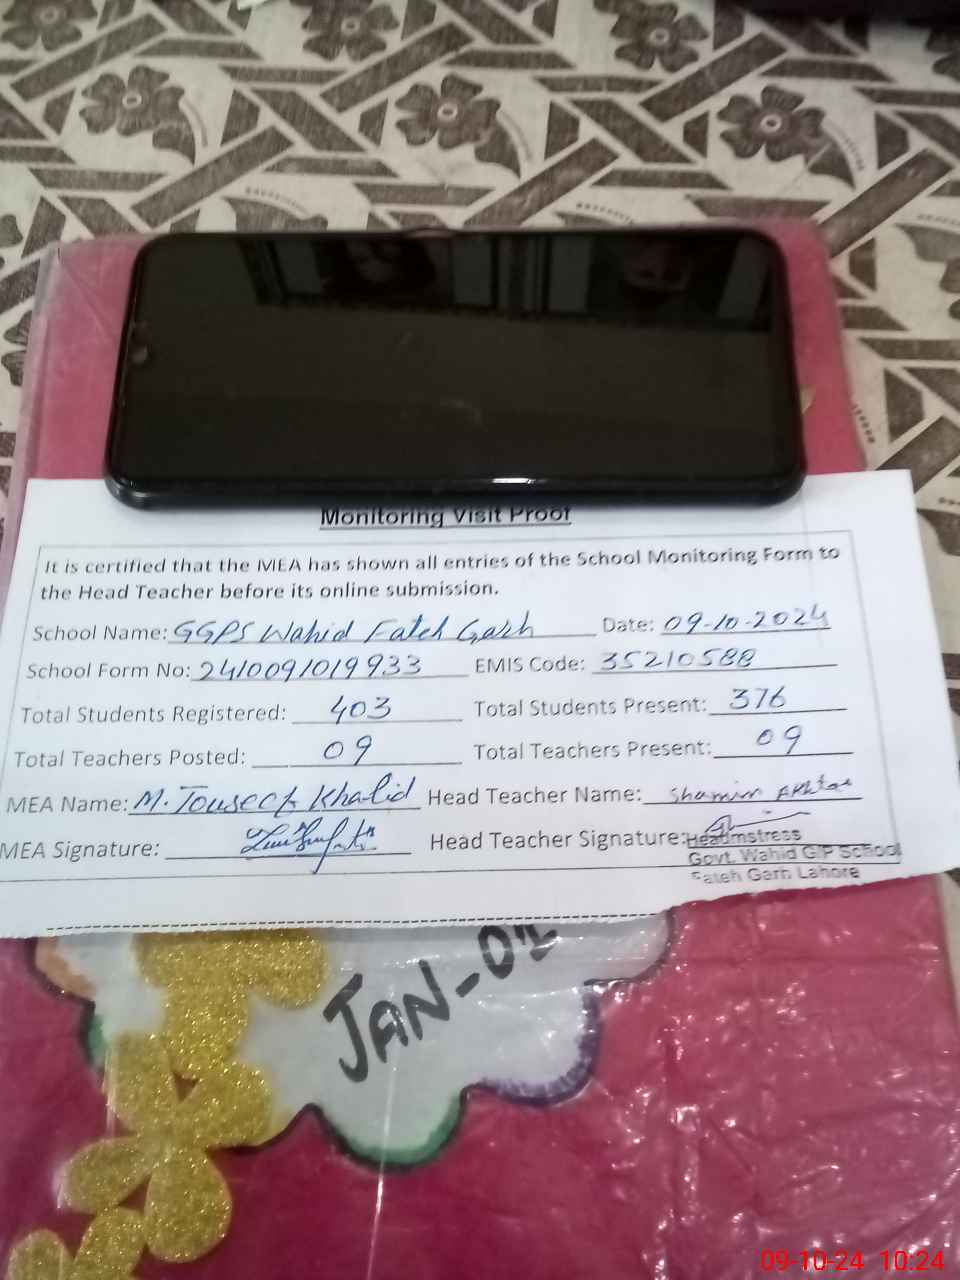 Monitoring Visit Proof
It is certified that the MEA has shown all entries of the School Monitoring Form to
the Head Teacher before its online submission.
School Name: GGPS Wahid Fateh Garh Date: 09-10-2024
School Form No: 2410091019933 EMIS Code: 35210588
Total Students Registered: 403 Total Students Present: 376
Total Teachers Posted: 09 Total Teachers Present: 09
MEA Name: M. Touseef Khalid Head Teacher Name: Shamim Akhtar
MEA Signature: Head Teacher Signature:
Headmistress
Govt. Wahid G/P School
Fateh Garh Lahore
JAN-01
09-10-24 10:24